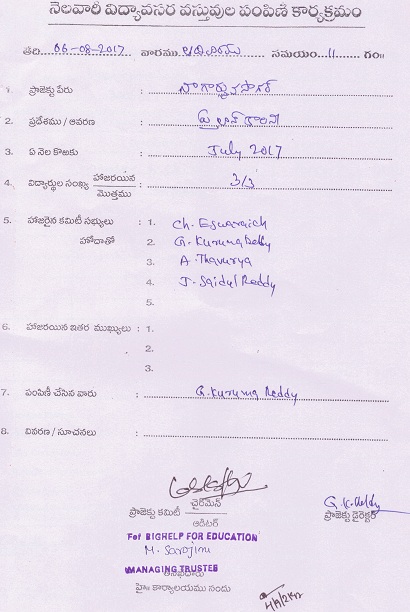 నెలవారీ విద్యావసర వస్తువుల పంపిణీ కార్యక్రమం
తేది. 06-08-2017 వారము. ఆదివారము సమయం. 11 గం॥
1. ప్రాజెక్టు పేరు : నాగార్జునసాగర్
2. ప్రదేశము / ఆవరణ : హిల్ కాలనీ
3. ఏ నెల కొఱకు : July 2017
4. విద్యార్థుల సంఖ్య హాజరయిన / మొత్తము : 3/3
5. హాజరైన కమిటీ సభ్యులు : 1. Ch. Eswaraich
హోదాతో 2. G. Kuruma Reddy
3. A. Thavurya
4. J. Saidul Reddy
5.
6. హాజరయిన ఇతర ముఖ్యులు : 1.
2.
3.
7. పంపిణీ చేసిన వారు : G. Kuruma Reddy
8. వివరణ / సూచనలు :
ప్రాజెక్టు కమిటీ చైర్‌మెన్ / ఆడిటర్
G.K. Reddy
ప్రాజెక్టు డైరెక్టర్
For BIGHELP FOR EDUCATION
M. Sarojini
MANAGING TRUSTEE
హైః కార్యాలయము నందు